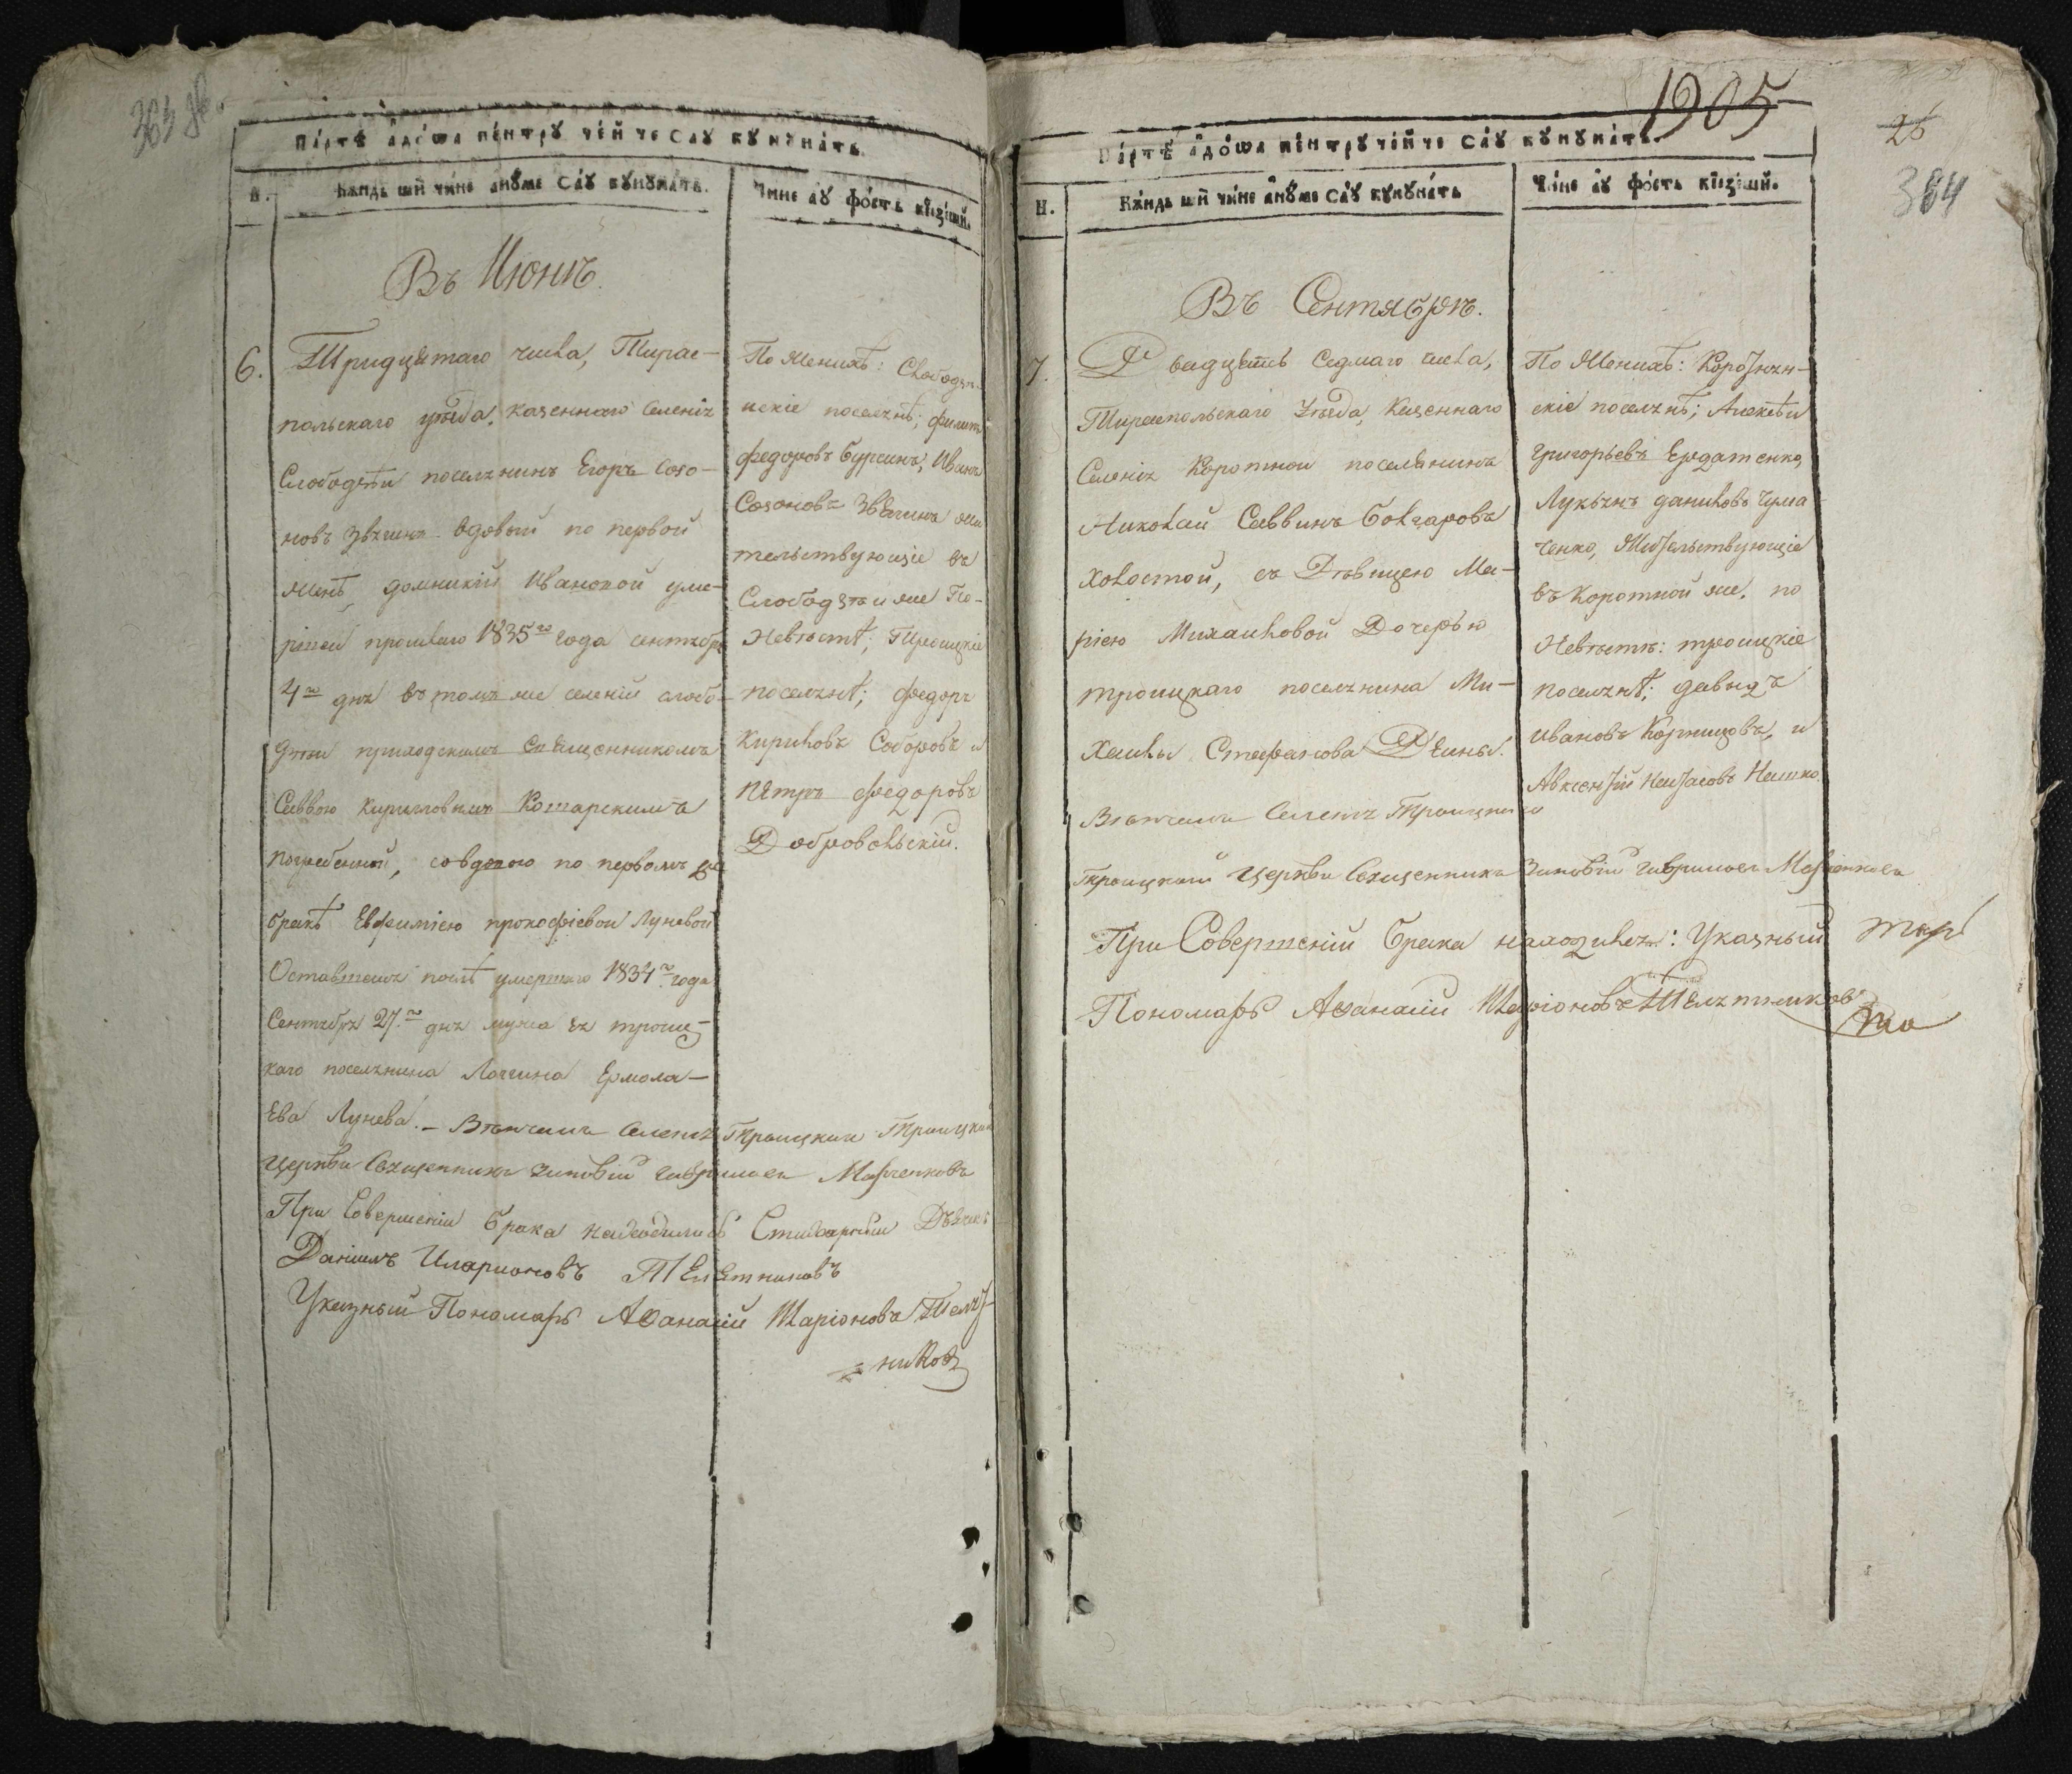 365 об.
Па́ртѣ а҆до́ꙋа пе́нтрꙋ че́й че са́ꙋ кꙋнꙋна́тъ.
Н.
Кѫ́ндъ шѝ чи́не а҆нꙋ́ме са́ꙋ кꙋнꙋна́тъ.
Чи́не а҆ꙋ фо́стъ кїези́шй.
Въ Июнѣ.
6.
Тридцятаго числа, Тирас-
польскаго уѣзда, казеннаго селенія
Слободзѣи поселянинъ Егоръ Созо-
новъ Звягинъ вдовый по первой
женѣ, домникій Ивановой уме-
ршей прошлаго 1835го года сентября
4го дня въ томъ же селеніи слобо-
дзѣи приходскимъ священникомъ
Саввою Кирилловымъ Комарскимъ
погребенной, со вдовою по первомъ
бракѣ Евфиміею прокофіевой Луневой
Оставшеюся послѣ умершаго 1834го года
Сентября 27го дня мужа ея троиц-
каго поселянина Логгина Ермола-
ева Лунева. – Вѣнчалъ селенія Троицкаго Троицкой
Церкви Священникъ Зиновій Гавриловъ Марченковъ
При Совершеніи брака находились Стихарный Дьячекъ
Даніилъ Иларионовъ Телятниковъ
Указный Пономарь Аѳанасій Иларіоновъ Телят-
никовъ
По Женихѣ: Слободзѣ-
йскіе поселянѣ; Филипъ
Федоровъ Бурсинъ, Иванъ
Созоновъ Звягинъ жи-
тельствующіе въ
Слободзѣи же По-
Невѣстѣ; Троицкіе
поселянѣ; Федоръ
Кириловъ Соборовъ и
Пётръ Федоровъ
Добровольскій.
1905
26
364
Па́ртѣ а҆до́ꙋа пе́нтрꙋ че́й че са́ꙋ кꙋнꙋна́тъ.
Н.
Кѫ́ндъ шѝ чи́не а҆нꙋ́ме са́ꙋ кꙋнꙋна́тъ
Чи́не а҆ꙋ фо́стъ кїези́шй.
Въ Сентябрѣ.
7.
Двадцять седмаго числа,
Тираспольскаго Уѣзда, Казеннаго
Селенія Коротной поселянинъ
Николай Саввинъ Болгаровъ
холостой, съ Дѣвицею Ма-
ріею Михаиловой Дочерью
троицкаго поселянина Ми-
хаила Стефанова Деина.
Вѣнчалъ Селенія Троицкаго
Троицкой Церкви Священникъ Зиновій Гавриловъ Марченковъ
При Совершеніи брака находился: Указный
Пономарь Аѳанасій Иларіоновъ Телятниковъ
По Женихѣ: Коротян-
скіе поселянѣ; Алексѣй
Григорьевъ Ердатенко,
Лукьянъ даниловъ Чума
ченко, Жительствующіе
въ Коротной же. по
Невѣстѣ: троицкіе
поселянѣ: давыдъ
ивановъ Корницовъ, и
Авксентій